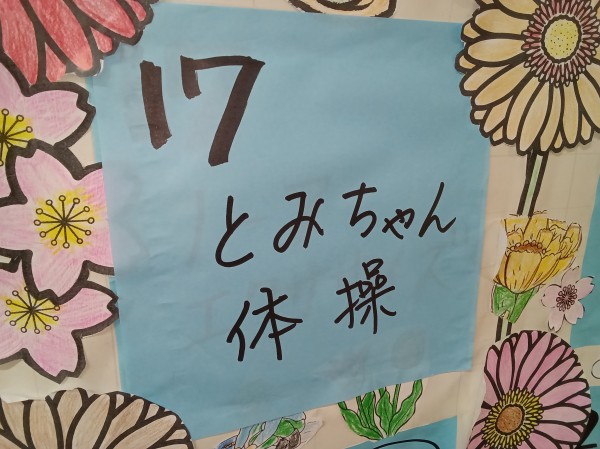 17
とみちゃん
体操